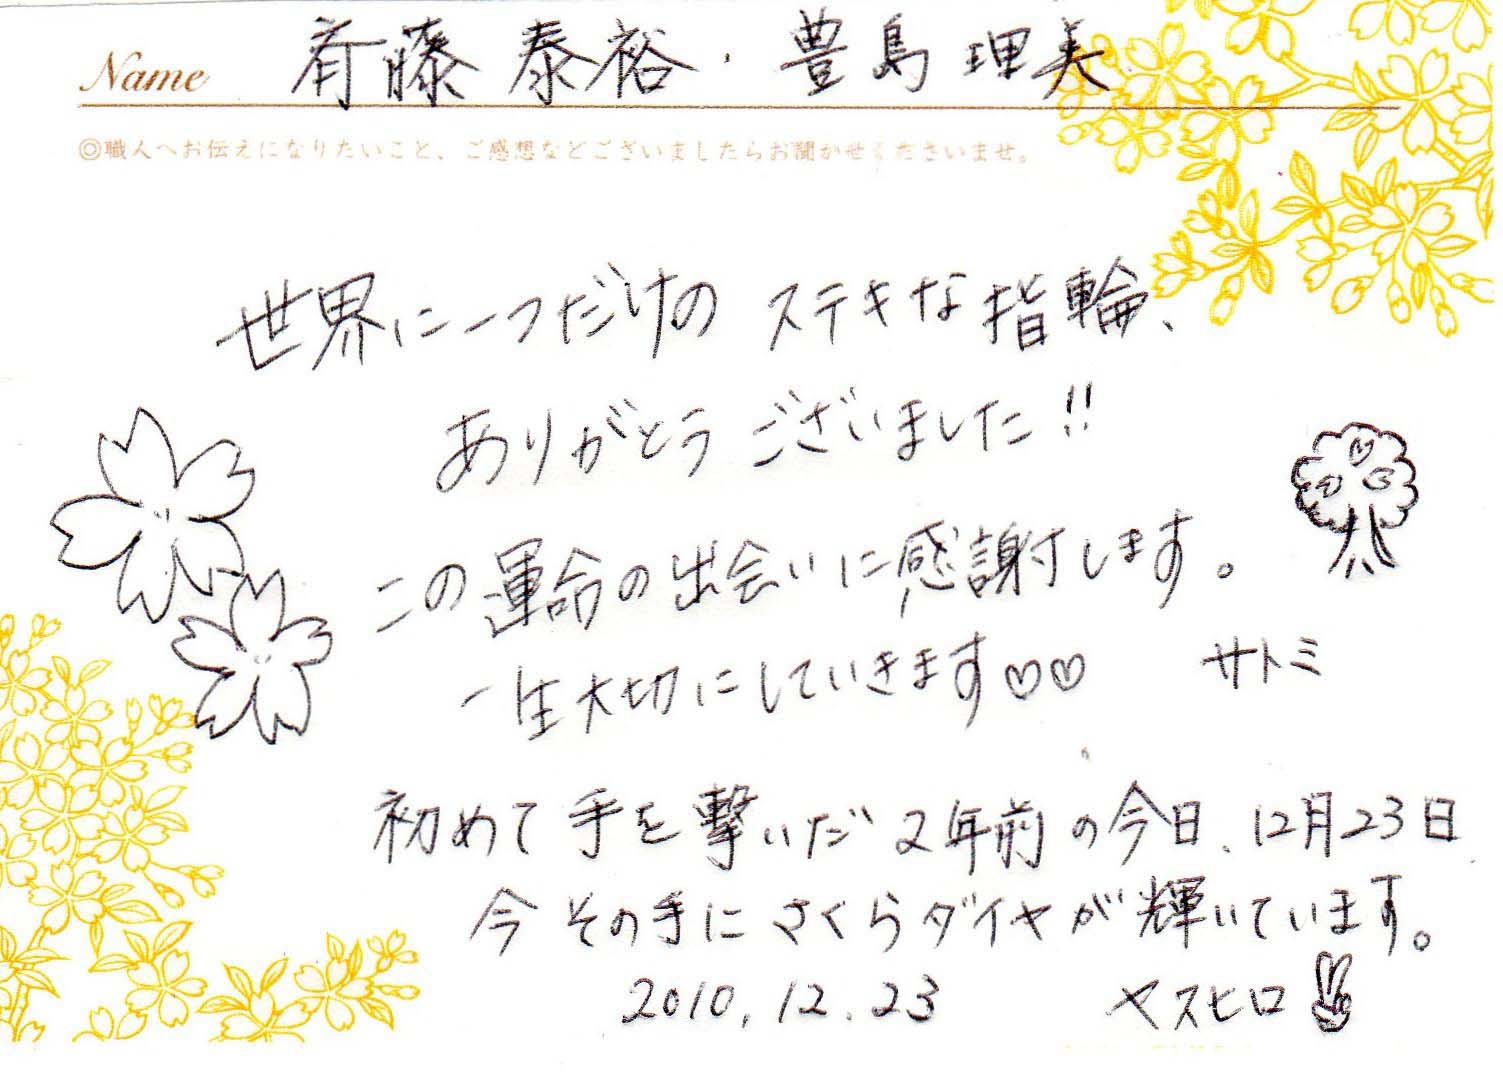 Name 斉藤 泰裕・豊島 理美
◎職人へお伝えになりたいこと、ご感想などございましたらお聞かせくださいませ。
世界に一つだけの ステキな指輪、
ありがとうございました!!
この運命の出会いに感謝します。
一生大切にしていきます♡♡ サトミ
初めて手を繋いだ2年前の今日、12月23日
今その手にさくらダイヤが輝いています。
2010.12.23 ヤスヒロ